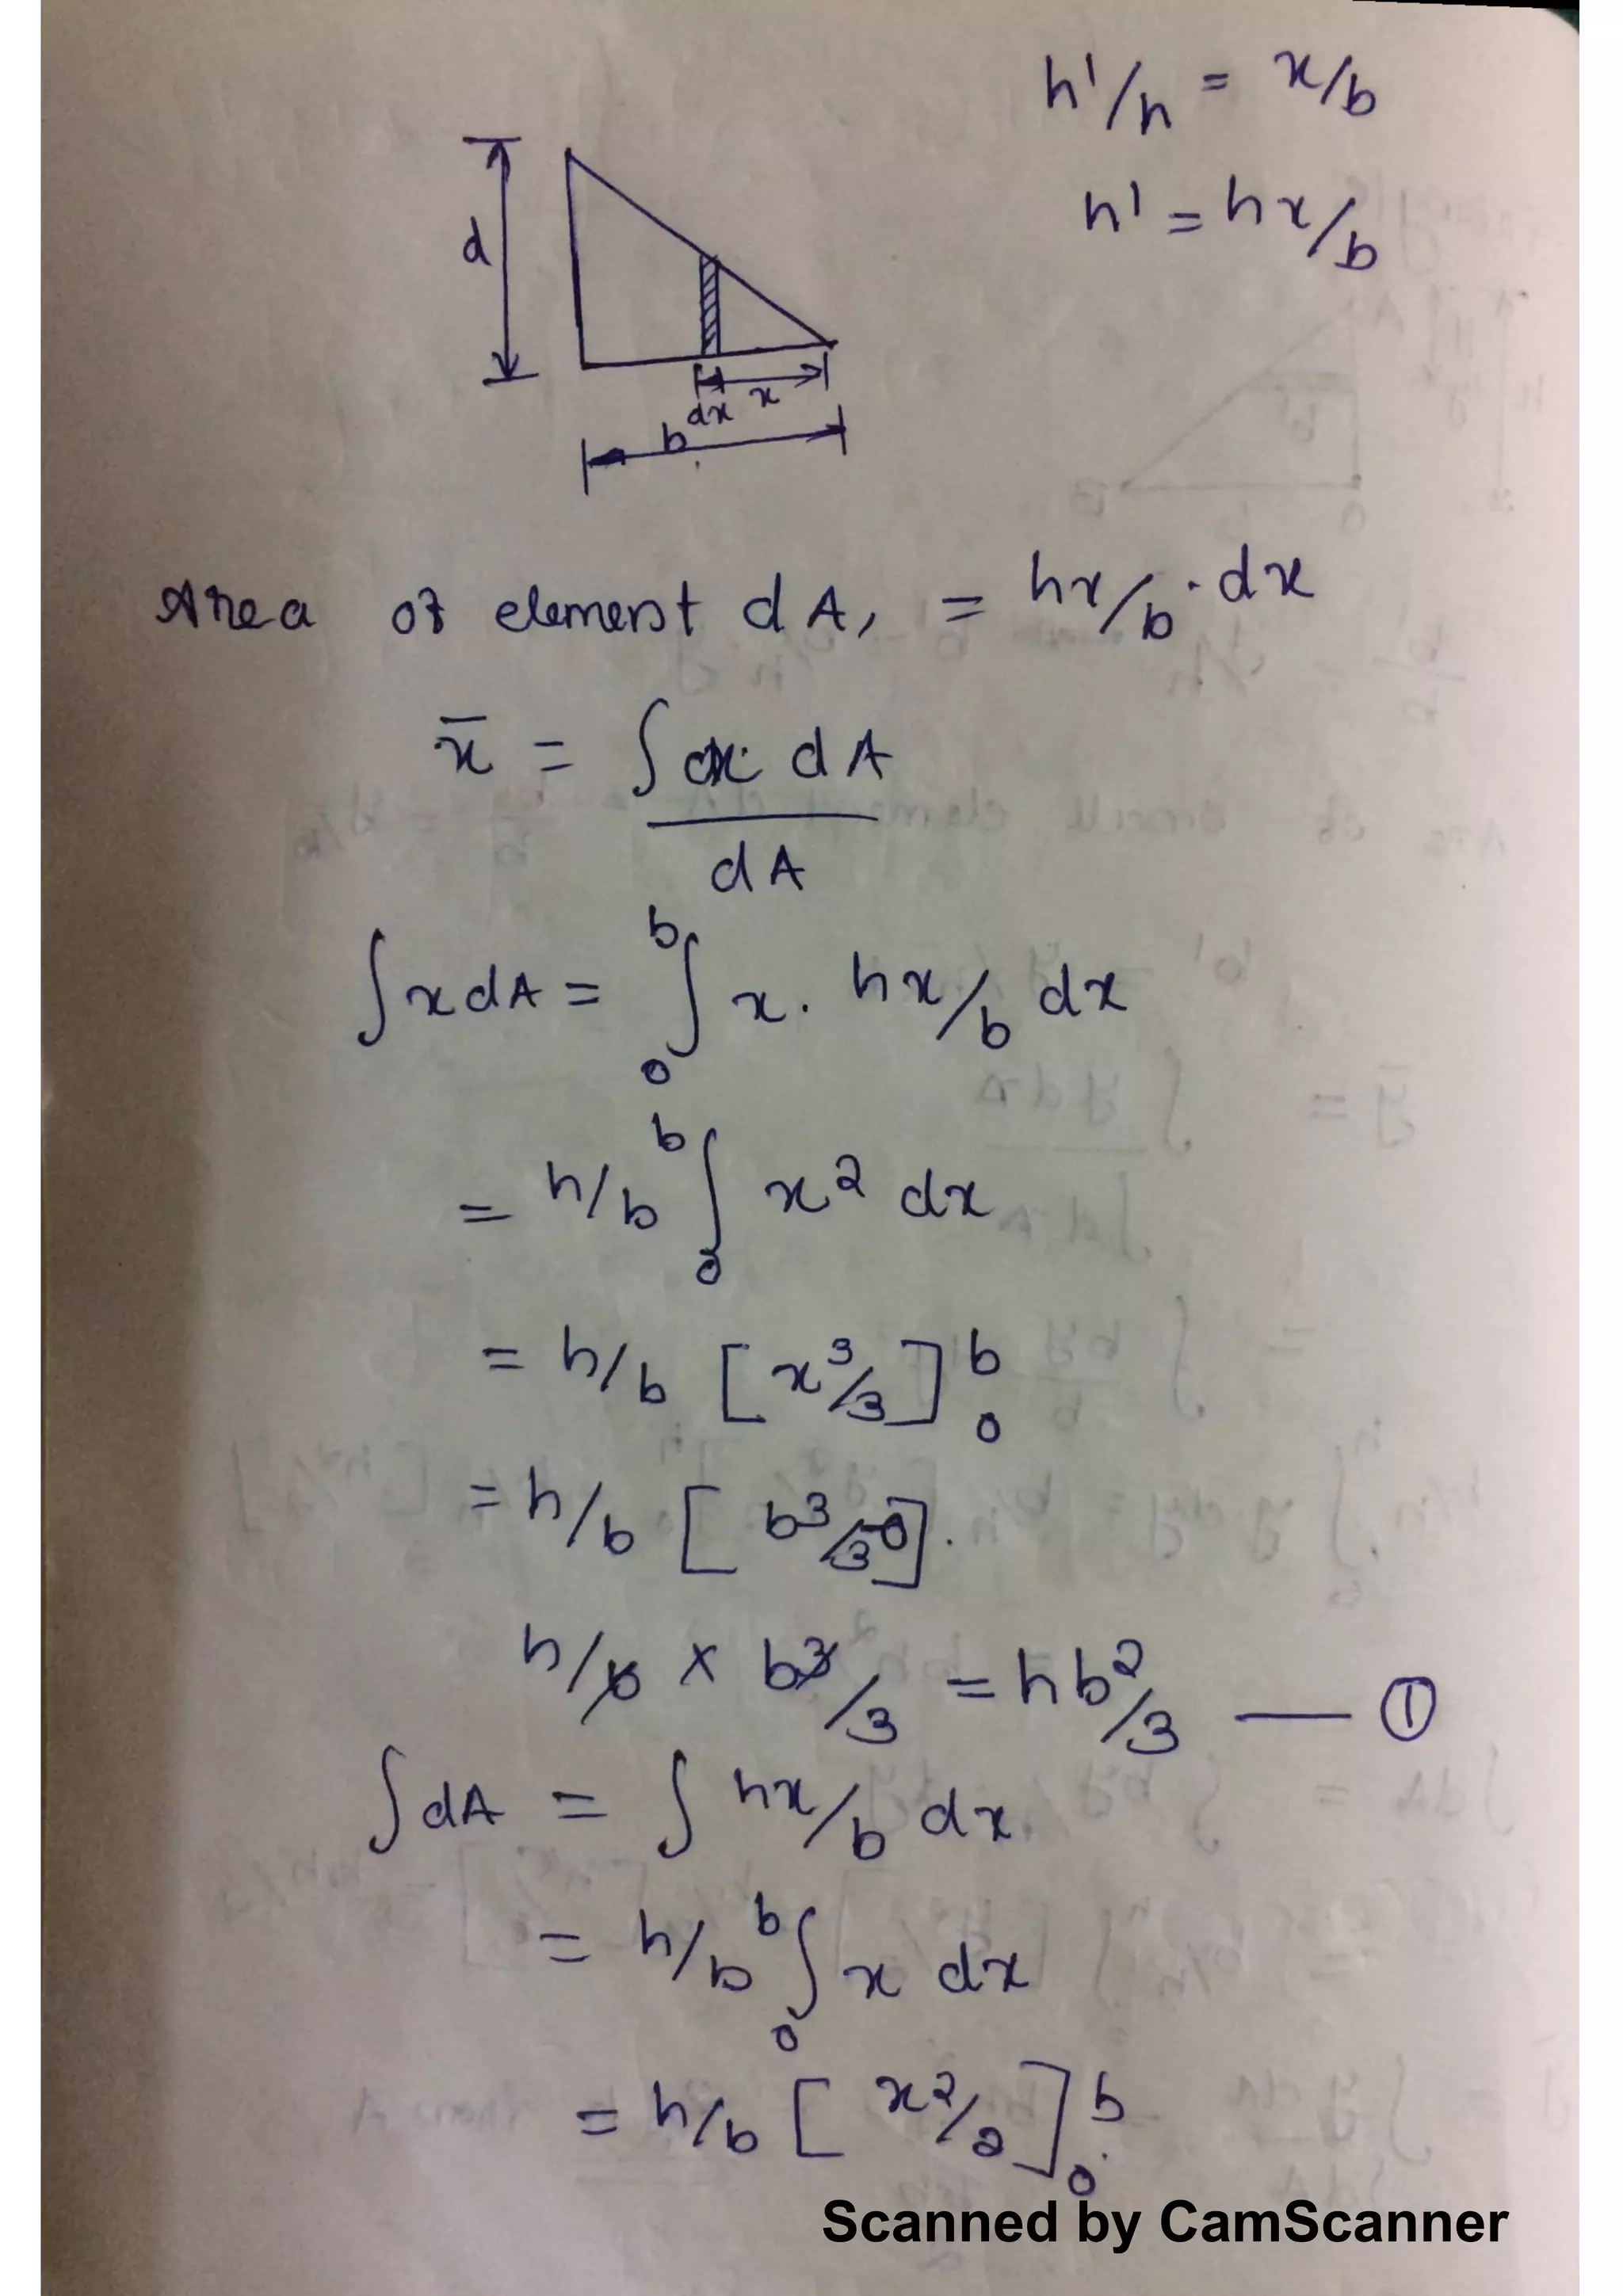 h'/h = x/b
h' = hx/b
d
dx x
b
Area of element dA, = hx/b · dx
x̄ = ∫ x · dA
dA
∫ x dA = ᵇ∫₀ x . hx/b dx
= h/b ᵇ∫₀ x² dx
= h/b [x³/3]ᵇ₀
= h/b [b³/3 - 0] .
h/b × b³/3 = hb²/3 — ①
∫ dA = ∫ hx/b dx
= h/b ᵇ∫₀ x dx
= h/b [x²/2]ᵇ₀
Scanned by CamScanner